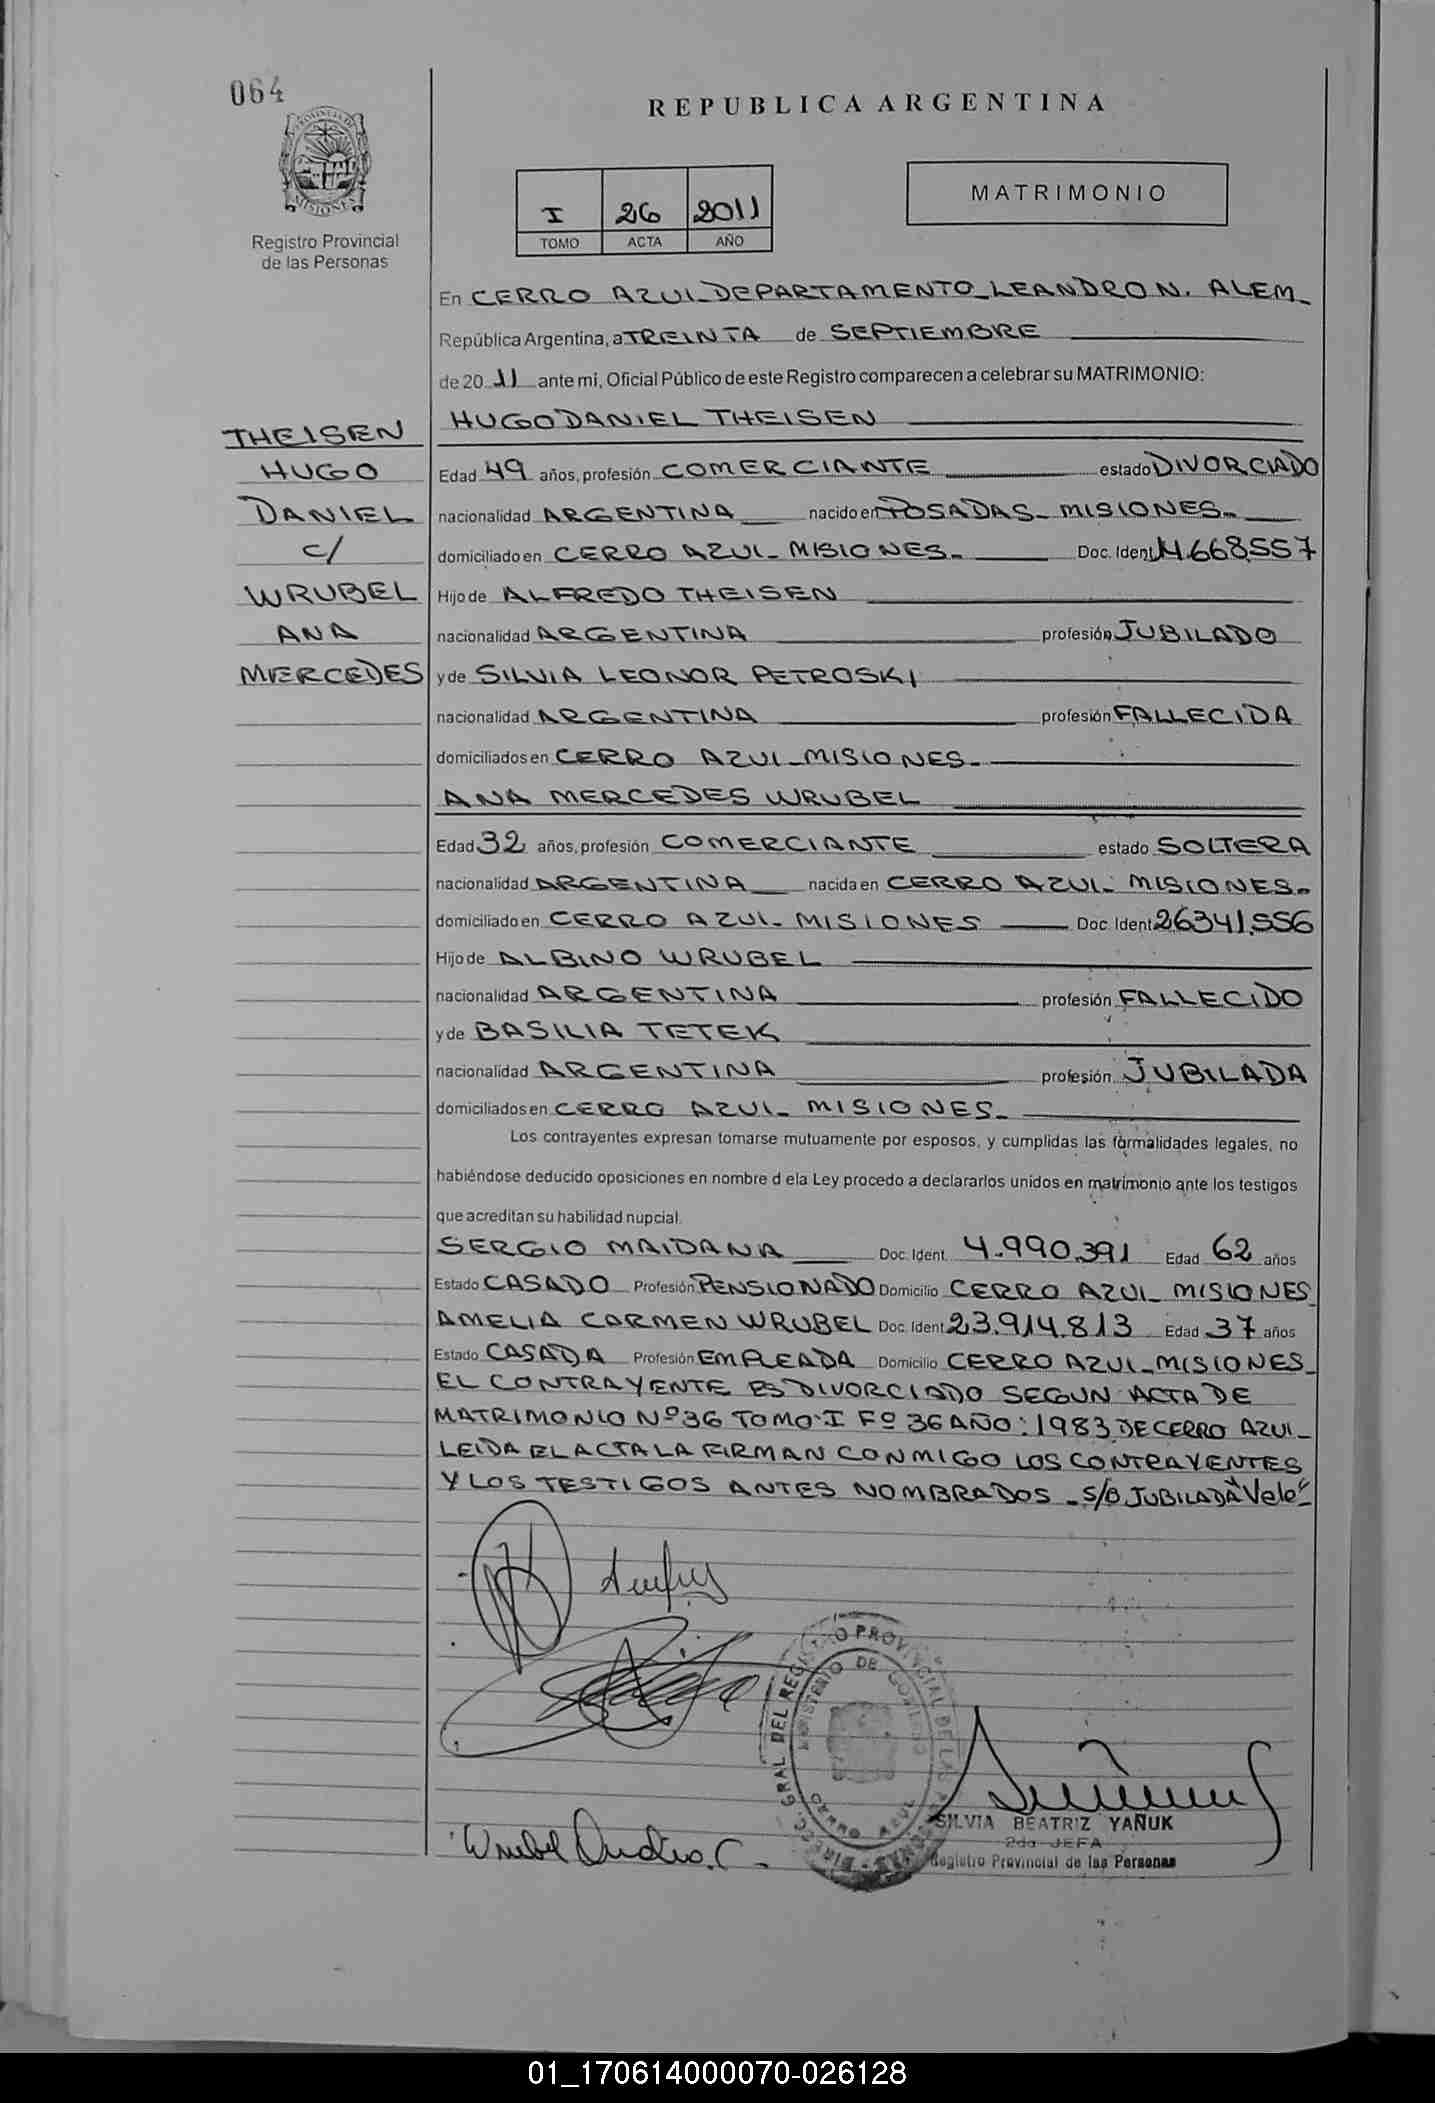 064
REPUBLICA ARGENTINA
PROVINCIA DE
MISIONES
Registro Provincial
de las Personas
I 26 2011
TOMO ACTA AÑO
MATRIMONIO
En CERRO AZUL_DEPARTAMENTO_LEANDRO N. ALEM_
República Argentina, a TREINTA de SEPTIEMBRE
de 20 11 ante mi, Oficial Público de este Registro comparecen a celebrar su MATRIMONIO:
THEISEN
HUGO
DANIEL
c/
WRUBEL
ANA
MERCEDES
HUGO DANIEL THEISEN
Edad 49 años, profesión COMERCIANTE estado DIVORCIADO
nacionalidad ARGENTINA nacido en POSADAS_ MISIONES_
domiciliado en CERRO AZUL_ MISIONES_ Doc. Ident. 14.668.557
Hijo de ALFREDO THEISEN
nacionalidad ARGENTINA profesión JUBILADO
y de SILVIA LEONOR PETROSKI
nacionalidad ARGENTINA profesión FALLECIDA
domiciliados en CERRO AZUL_MISIONES_
ANA MERCEDES WRUBEL
Edad 32 años, profesión COMERCIANTE estado SOLTERA
nacionalidad ARGENTINA nacida en CERRO AZUL_ MISIONES_
domiciliado en CERRO AZUL_ MISIONES Doc. Ident. 26341.556
Hijo de ALBINO WRUBEL
nacionalidad ARGENTINA profesión FALLECIDO
y de BASILIA TETEK
nacionalidad ARGENTINA profesión JUBILADA
domiciliados en CERRO AZUL_ MISIONES_
Los contrayentes expresan tomarse mutuamente por esposos, y cumplidas las formalidades legales, no
habiéndose deducido oposiciones en nombre d ela Ley procedo a declararlos unidos en matrimonio ante los testigos
que acreditan su habilidad nupcial.
SERGIO MAIDANA Doc. Ident. 4.990.391 Edad 62 años
Estado CASADO Profesión PENSIONADO Domicilio CERRO AZUL_ MISIONES_
AMELIA CARMEN WRUBEL Doc. Ident. 23.914.813 Edad 37 años
Estado CASADA Profesión EMPLEADA Domicilio CERRO AZUL_MISIONES_
EL CONTRAYENTE ES DIVORCIADO SEGUN ACTA DE
MATRIMONIO Nº 36 TOMO: I Fº 36 AÑO: 1983 DE CERRO AZUL_
LEIDA EL ACTA LA FIRMAN CONMIGO LOS CONTRAYENTES
Y LOS TESTIGOS ANTES NOMBRADOS _ S/B JUBILADA "Vale"_
DIREC. GRAL. DEL REGISTRO PROVINCIAL DE LAS PERSONAS
MINISTERIO DE GOBIERNO
CERRO AZUL
Wrubel C.
SILVIA BEATRIZ YAÑUK
2da JEFA
Registro Provincial de las Personas
01_170614000070-026128